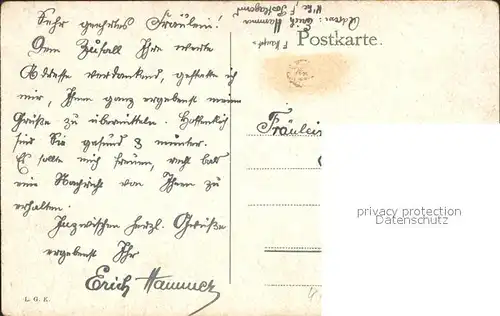 Sehr geehrtes Fräulein!
Dem Zufall Ihre werte
Addresse verdankend, gestatte ich
mir, Ihnen ganz ergebenst meine
Grüße zu übermitteln. Hoffentlich
sind Sie gesund & munter.
Es sollte mich freuen, recht bald
eine Nachricht von Ihnen zu
erhalten.
Inzwischen herzl. Grüße
ergebenst Ihr
Erich Hammer
L. G. K.
Erich Hammer
Postkarte.
Fräulein
privacy protection
www.ansichtskarten-center.de